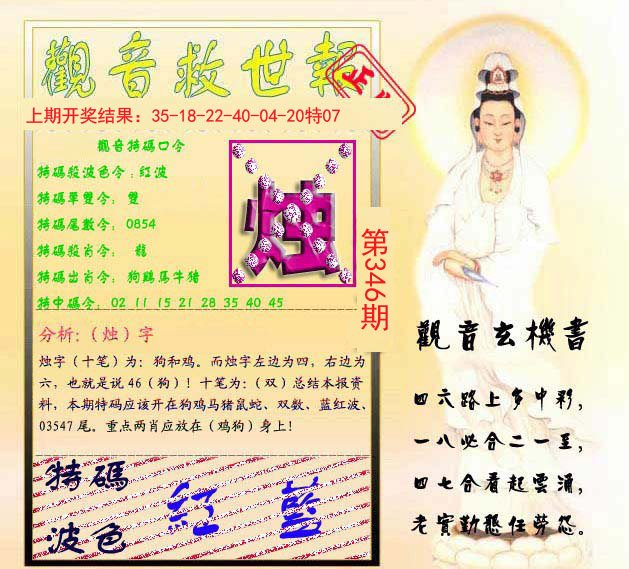 觀音救世報
上期开奖结果：35-18-22-40-04-20特07
觀音特碼口令
特碼殺波色令：紅波
特碼單雙令： 雙
特碼尾數令： 0854
特碼殺肖令： 龍
特碼出肖令： 狗鷄馬牛猪
特中碼令： 02 11 15 21 28 35 40 45
烛
第346期
分析：（烛）字
烛字（十笔）为：狗和鸡。而烛字左边为四，右边为
六，也就是说46（狗）！十笔为：（双）总结本报资
料，本期特码应该开在狗鸡马猪鼠蛇、双数、蓝红波、
03547尾。重点两肖应放在（鸡狗）身上！
特碼
波色
紅 藍
觀音玄機書
四六路上多中彩，
一八必合二一至，
四七合看起雲涌，
老實勤懇任勞怨。